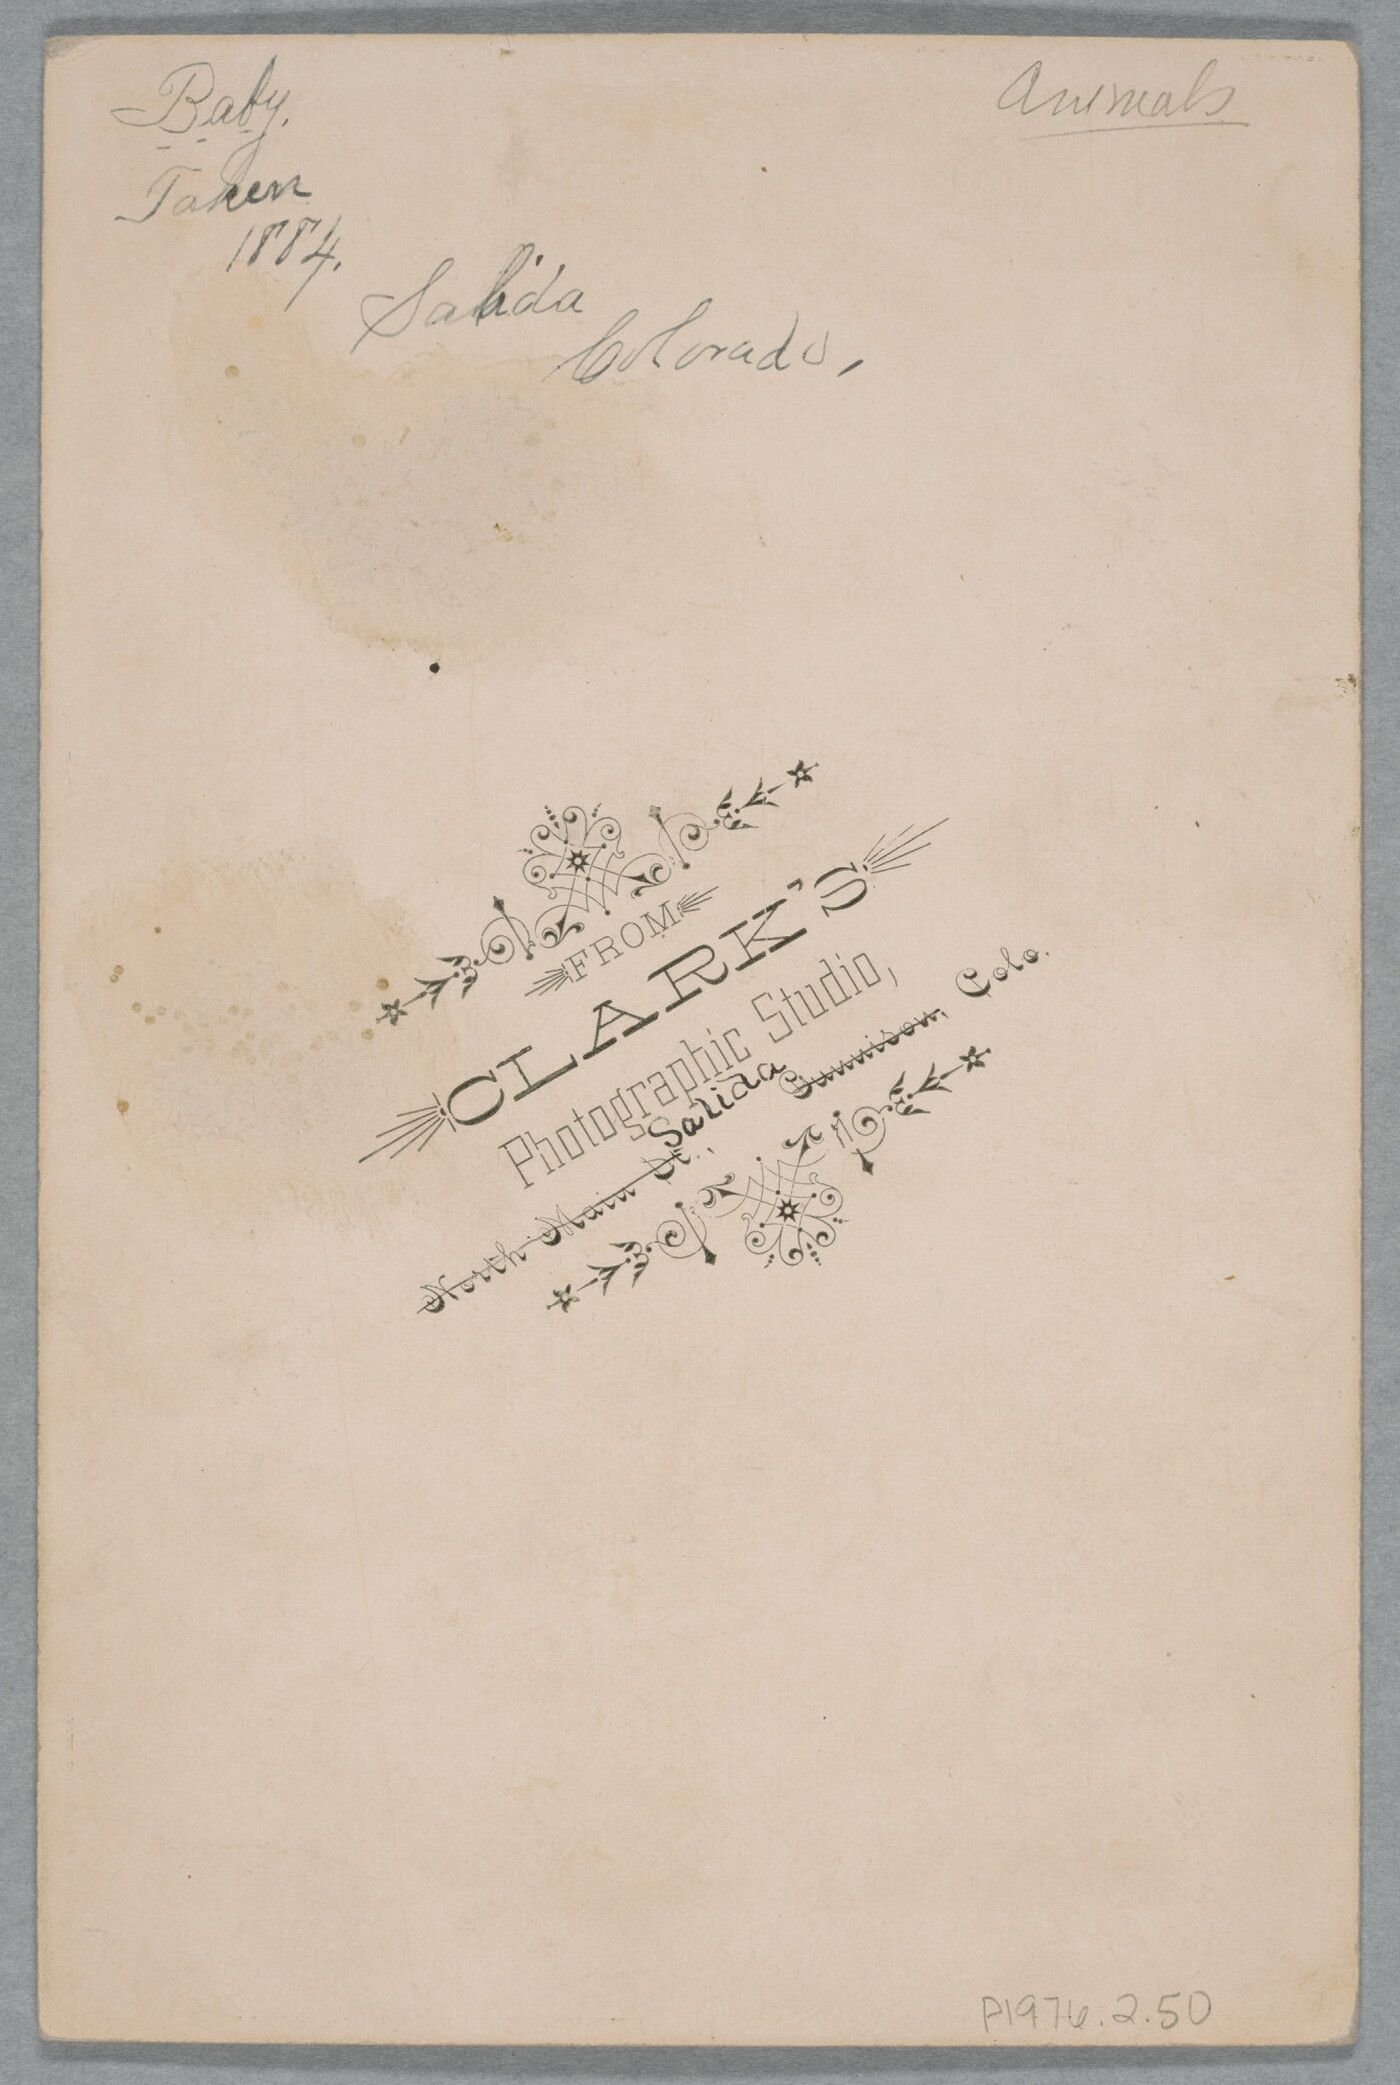 Baby.
Animals
Taken
1884.
Salida
Colorado,
FROM
CLARK'S
Photographic Studio,
Salida
North Main St., Gunnison, Colo.
P1976.2.50